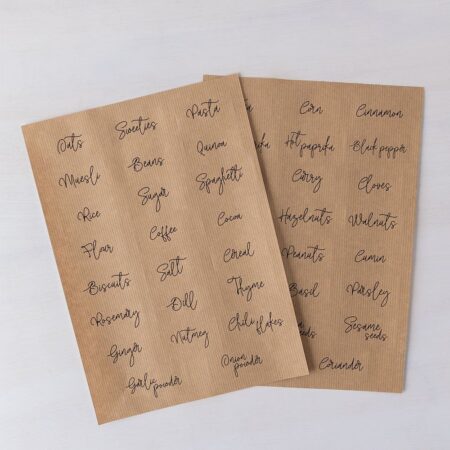 Oats
Sweeties
Pasta
Muesli
Beans
Quinoa
Rice
Sugar
Spaghetti
Flour
Coffee
Cocoa
Biscuits
Salt
Cereal
Rosemary
Dill
Thyme
Ginger
Nutmeg
Chili flakes
Garlic powder
Onion powder
Corn
Cinnamon
Hot paprika
Black pepper
Curry
Cloves
Hazelnuts
Walnuts
Peanuts
Cumin
Basil
Parsley
seeds
Sesame seeds
Coriander